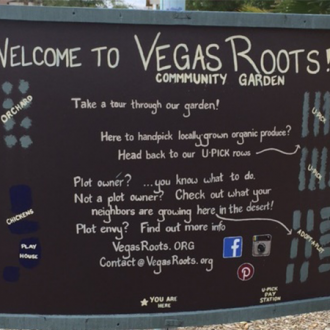 WELCOME TO VEGAS ROOTS!
COMMMUNITY GARDEN
Take a tour through our garden!
Here to handpick locally-grown organic produce?
Head back to our U-PICK rows
Plot owner? ...you know what to do.
Not a plot owner? Check out what your
neighbors are growing here in the desert!
Plot envy? Find out more info
VegasRoots.ORG
Contact@VegasRoots.org
ORCHARD
CHICKENS
PLAY
HOUSE
U-PICK
U-PICK
ADOPT A PLOT
U-PICK
PAY
STATION
★ YOU ARE
HERE